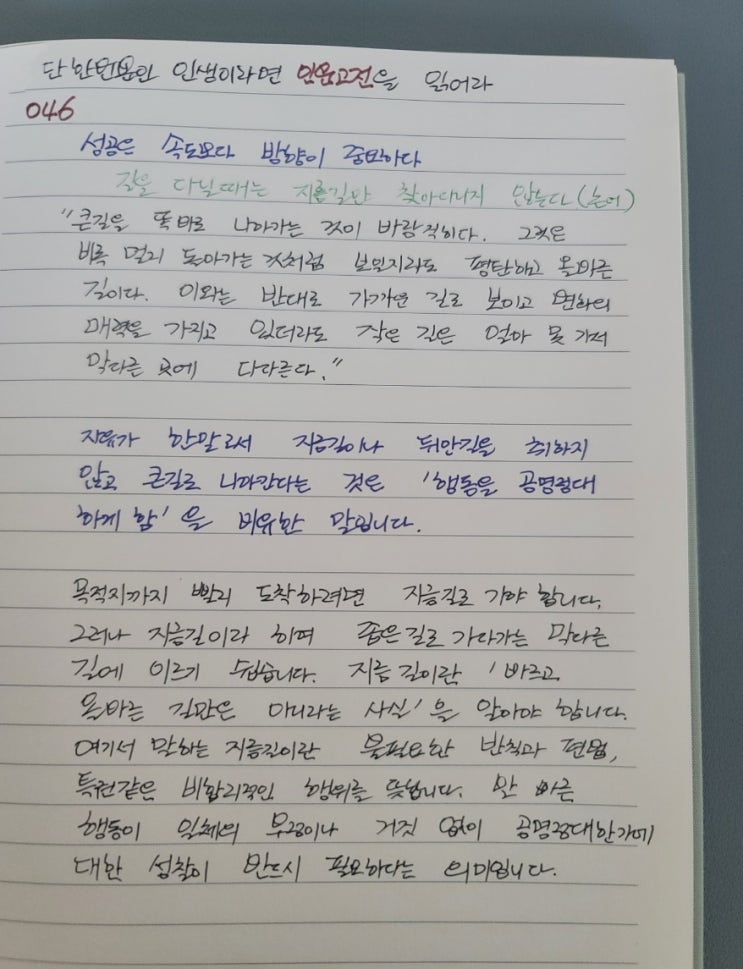 단 한번뿐인 인생이라면 인문고전을 읽어라
046
성공은 속도보다 방향이 중요하다
길을 다닐때는 지름길만 찾아다니지 않는다(논어)
"큰길을 똑바로 나아가는 것이 바람직하다. 그것은
비록 멀리 돌아가는 것처럼 보일지라도 평탄하고 올바른
길이다. 이와는 반대로 가까운 길로 보이고 변화의
매력을 가지고 있더라도 작은 길은 얼마 못 가서
막다른 곳에 다다른다."
자유가 한말로서 지름길이나 뒤안길을 취하지
않고 큰길로 나아간다는 것은 '행동을 공명정대
하게 함'을 비유한 말입니다.
목적지까지 빨리 도착하려면 지름길로 가야 합니다.
그러나 지름길이라 하며 좁은길로 가다가는 막다른
길에 이르기 쉽습니다. 지름길이란 '바르고
올바른 길만은 아니라는 사실'을 알아야 합니다.
여기서 말하는 지름길이란 불필요한 반칙과 편법,
특권같은 비합리적인 행위를 뜻합니다. 발 빠른
행동이 일체의 부정이나 거짓 없이 공명정대한가에
대한 성찰이 반드시 필요하다는 의미입니다.